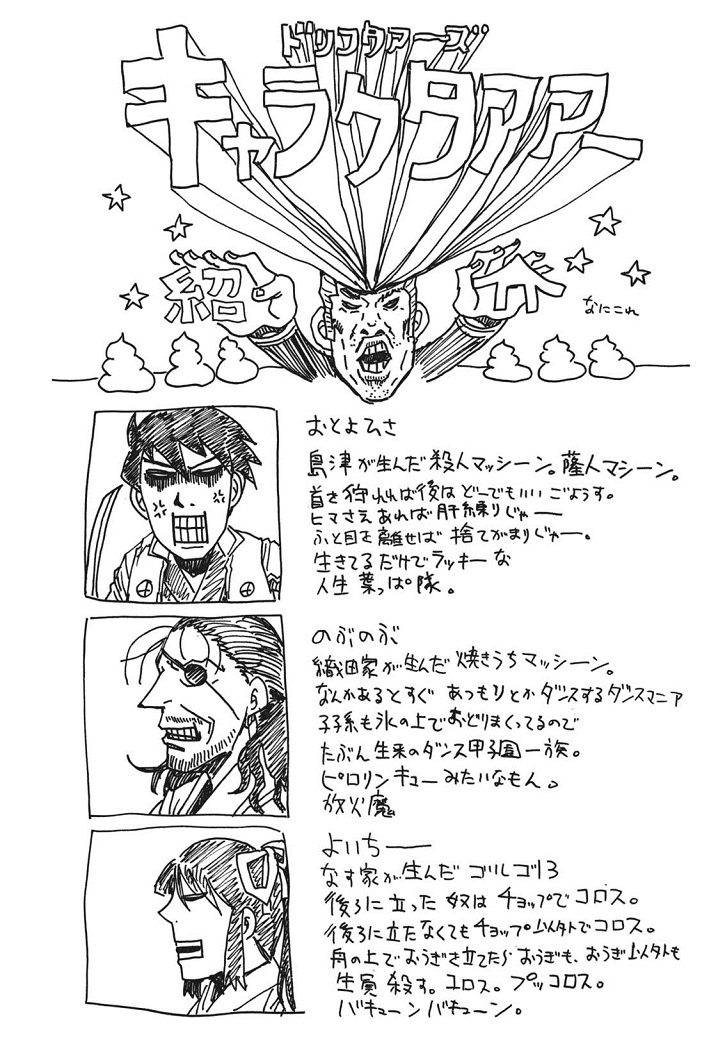 ドリフタアーズ
キャラクタアアー
紹介
なにこれ
おとよひさ
島津が生んだ殺人マッシーン。薩人マシーン。
首さ狩れれば後はどーでもいいごようす。
ヒマさえあれば肝練りじゃー
ふと目を離せば捨てがまりじゃー。
生きてるだけでラッキーな
人生葉っぱ隊。
のぶのぶ
織田家が生んだ焼きうちマッシーン。
なんかあるとすぐあつもりとかダンスするダンスマニア
子子孫も氷の上でおどりまくってるので
たぶん生来のダンス甲子園一族。
ピロリンキューみたいなもん。
放火魔
よいちー
なす家が生んだゴルゴ13
後ろに立った奴はチョップでコロス。
後ろに立たなくてもチョップ以外でコロス。
舟の上でおうぎさ立てたらおうぎも、おうぎ以外も
全員殺す。コロス。ブッコロス。
バキューンバキューン。